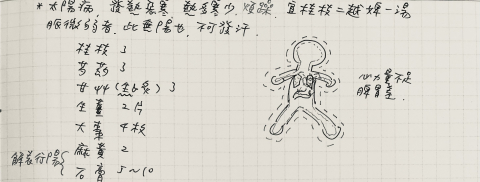 *太陽病 發熱惡寒 熱多寒少 煩躁. 宜桂枝二越婢一湯
脈微弱者. 此無陽也. 不可發汗.
桂枝 3
芍葯 3
甘艸 (炙) 3
生薑 2片
大棗 4枚
麻黃 2
石膏 5~10
解表行陽
心力量不足
脾胃差.